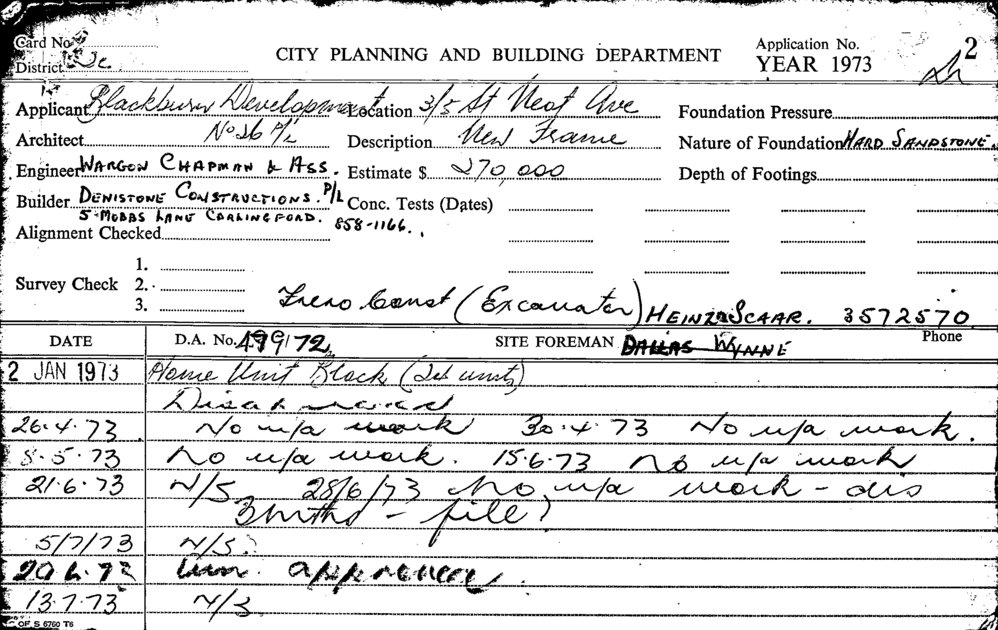 Card No
CITY PLANNING AND BUILDING DEPARTMENT
Application No. 2
District
YEAR 1973
Applicant Blackburn Development Location 3/5 St Neot Ave Foundation Pressure
Architect No 26 P/L Description New Frame Nature of Foundation HARD SANDSTONE.
Engineer WARGON CHAPMAN & ASS. Estimate $ 270,000 Depth of Footings
Builder DENISTONE CONSTRUCTIONS. P/L Conc. Tests (Dates)
5 MOBBS LANE CARLINGFORD. 858-1166.
Alignment Checked
1.
Survey Check 2.
3. Const (Excavator) HEINZ SCAAR. 3572570
DATE D.A. No. 499/72 SITE FOREMAN DALLAS WYNNE Phone
2 JAN 1973 Home Unit Block ( units)
26.4.73 No u/a work 30.4.73 No u/a work.
8.5.73 No u/a work. 15.6.73 No u/a work
21.6.73 N/S 28/6/73 No u/a work - dis
3 mths - file?
5/7/73 N/S
13.7.73 N/S
OF S 6760 T6